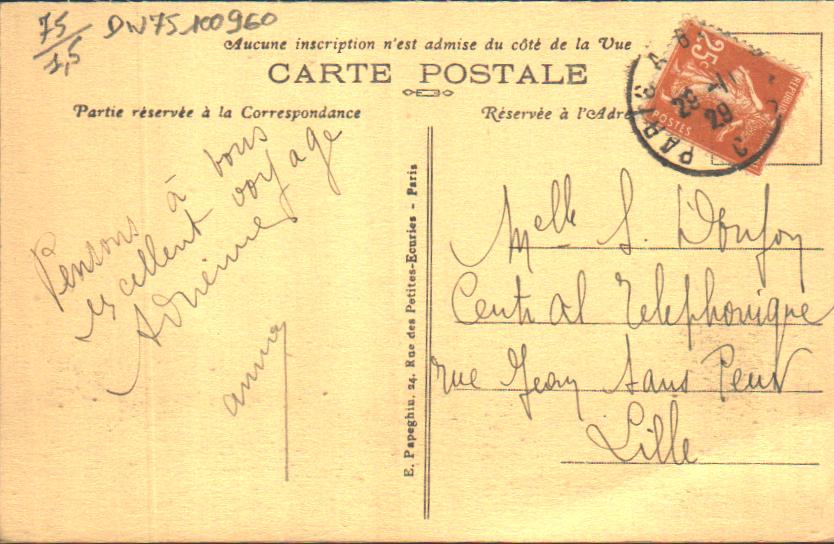 75
1,5
DW75 100960
Aucune inscription n'est admise du côté de la Vue
CARTE POSTALE
Partie réservée à la Correspondance
Réservée à l'Adre
25c
POSTES
PARIS
29
Pensons à vous
excellent voyage
Adrienne
anna
E. Papeghin, 24, Rue des Petites-Ecuries - Paris
Melle S.
Central Telephonique
rue Jean Sans Peur
Lille